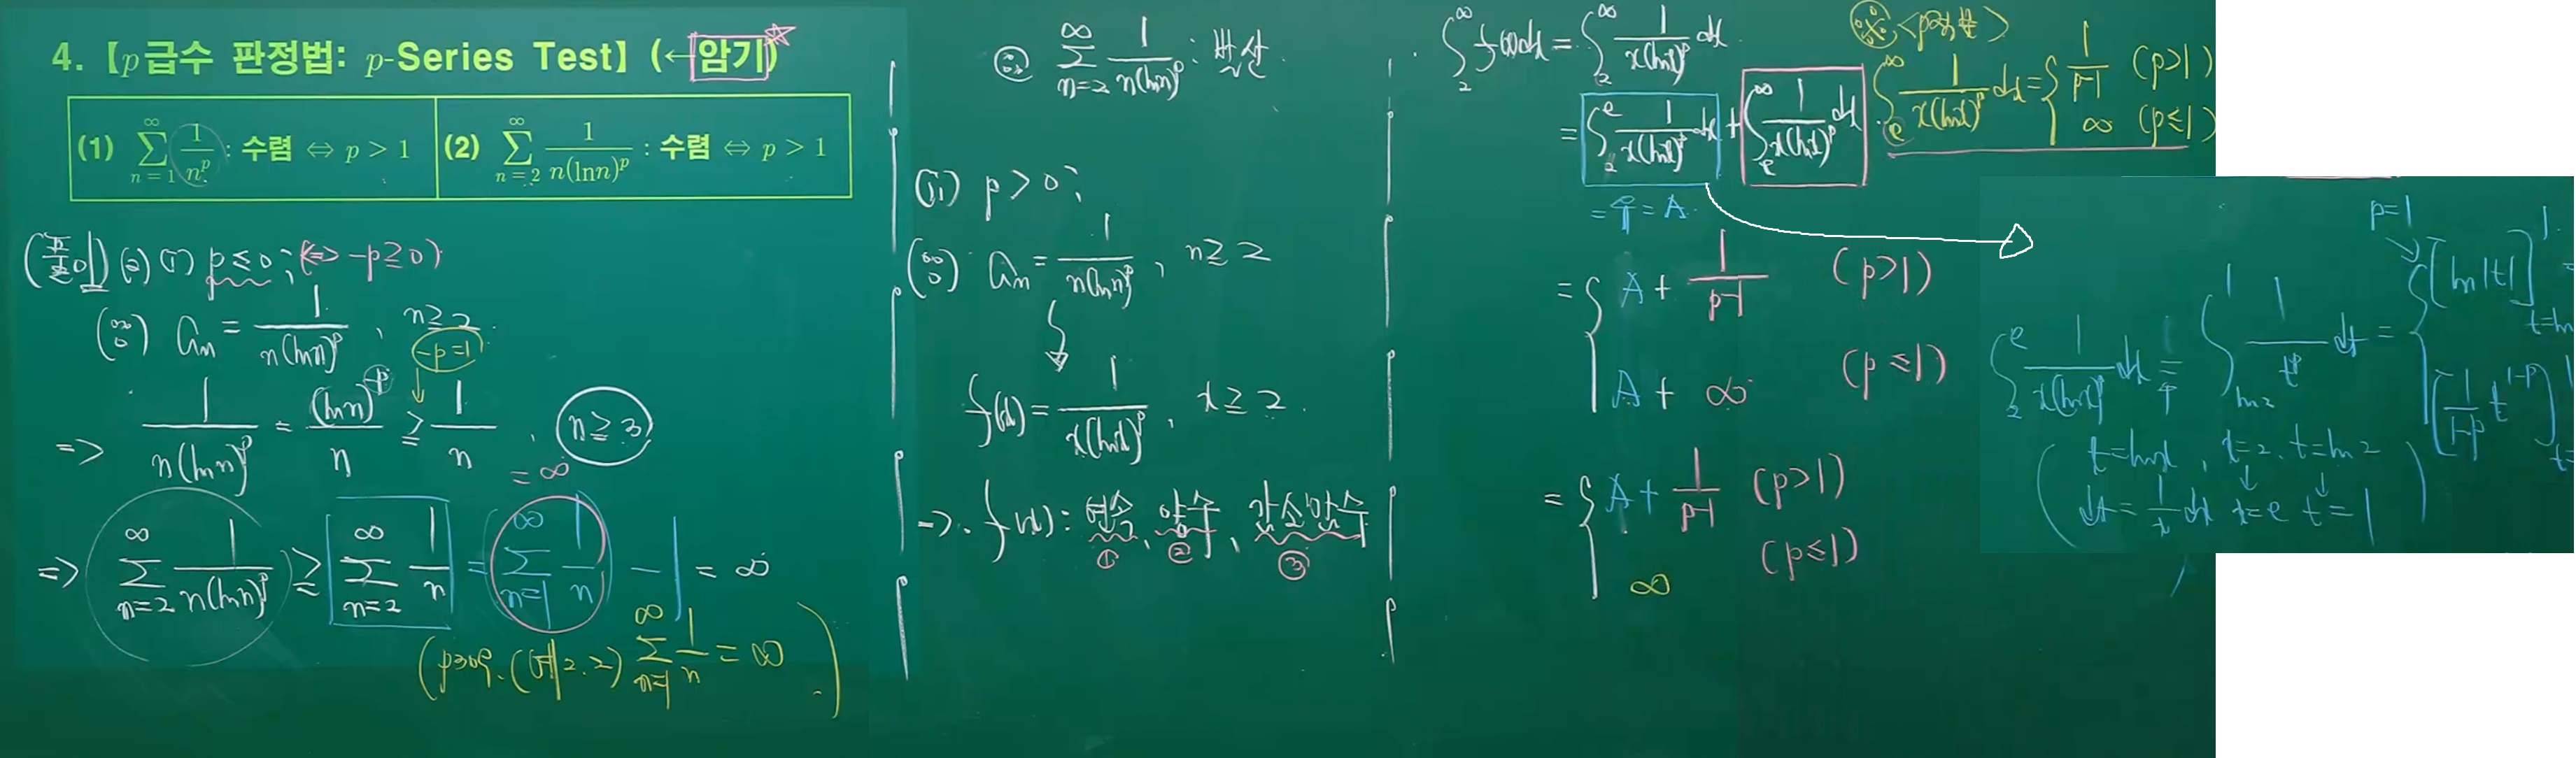 4. 【p급수 판정법: p-Series Test】(←암기)
(1) ∑_{n=1}^{∞} 1/n^p : 수렴 ⇔ p > 1
(2) ∑_{n=2}^{∞} 1/(n(ln n)^p) : 수렴 ⇔ p > 1
(2) (i) p ≤ 0 ; (⇔ -p ≥ 0)
a_n = 1/(n(ln n)^p), n ≥ 2
-p=1
⇒ 1/(n(ln n)^p) = (ln n)^{-p}/n ≥ 1/n, n ≥ 3
= ∞
⇒ ∑_{n=2}^{∞} 1/(n(ln n)^p) ≥ ∑_{n=2}^{∞} 1/n = ∑_{n=1}^{∞} 1/n - 1 = ∞
(p309. (예 2.2) ∑_{n=1}^{∞} 1/n = ∞)
∴ ∑_{n=2}^{∞} 1/(n(ln n)^p) : 발산
(ii) p > 0 ;
a_n = 1/(n(ln n)^p), n ≥ 2
f(x) = 1/(x(ln x)^p), x ≥ 2
⇒ · f(x) : 연속, 양수, 감소함수
① ② ③
· ∫_2^∞ f(x)dx = ∫_2^∞ 1/(x(ln x)^p) dx
= ∫_2^e 1/(x(ln x)^p) dx + ∫_e^∞ 1/(x(ln x)^p) dx
= A
= { A + 1/(p-1) (p>1)
A + ∞ (p≤1)
= { A + 1/(p-1) (p>1)
∞ (p≤1)
※ <p적분>
∫_e^∞ 1/(x(ln x)^p) dx = { 1/(p-1) (p>1)
∞ (p≤1)
p=1
∫_2^e 1/(x(ln x)^p) dx = ∫_{ln 2}^1 1/t^p dt = { [ln|t|]^1
[1/(1-p) t^{1-p}]^1
(t=ln x, x=2, t=ln 2
dt = 1/x dx x=e t=1)